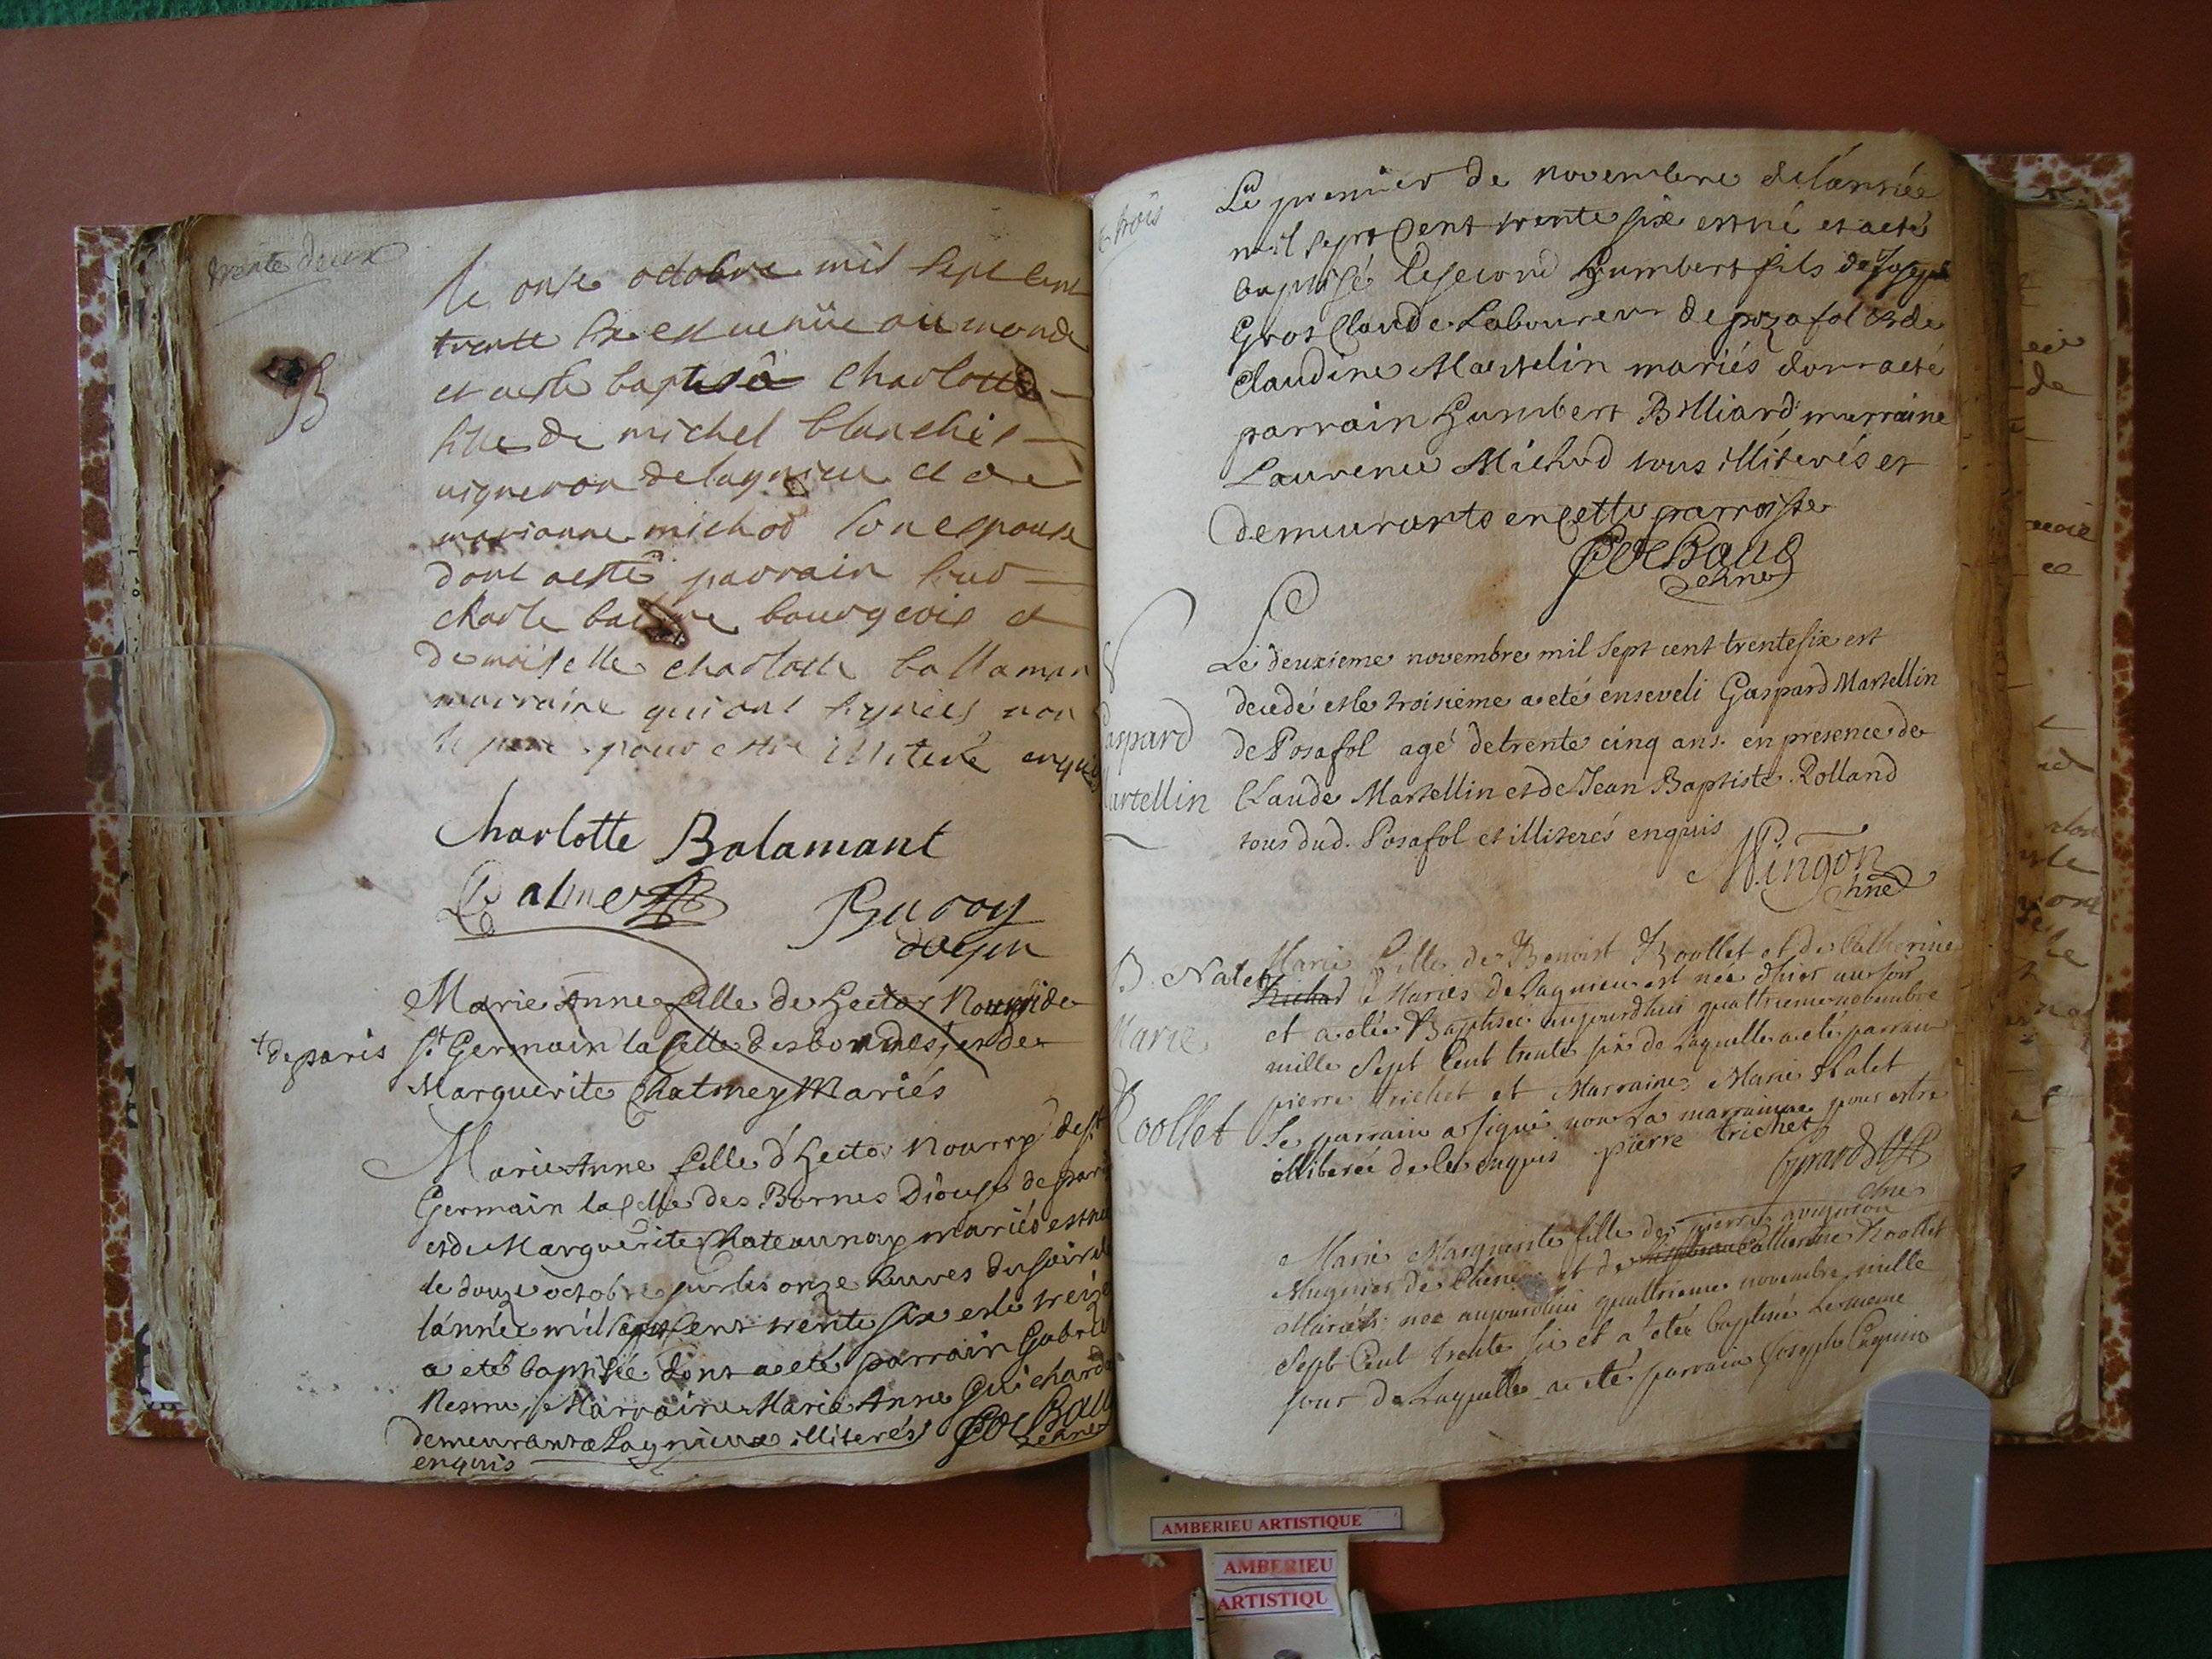 trente deux
le onse octobre mil sept cent
trente six est venüe au monde
et aesté baptisé charlotte
fille de michel blanchet
uigneron de lagnieu et de
marianne michod son espouse
dont aesté parrain
charle bourgeois et
demoiselle charlotte ballaman
marraine qui ont signés non
le pere pour estre illiteré enquis
Charlotte Balamant
Balme
Buroy
doyen
Marie Anne fille de Hector Nourri de
+ de paris
st Germain la Celle des bordes, et de
Marguerite Chatney Mariés
Marie Anne fille d'Hector Nourry de st
Germain la Celle des Bornes Diouse de paris
et de Marguerite Chateaunay mariés est née
le douze octobre sur les onze heures du soir de
l'année mil sept cent trente six et le treize
a eté baptisée dont a eté parrain Gabriel
Nesme, Marraine Marie Anne Guichard
demeurants a Lagnieux illiterés
enquis
trois
Le premier de novembre de l'année
mil sept Cent trente six est né et a eté
baptisé le second Humbert fils de Joseph
Gros Claude Laboureur de pozafol et de
Claudine Martelin mariés dont a eté
parrain Humbert Billiard, marraine
Laurence Michod tous illiterés et
demeurants en Cette parroisse
Gaspard
Martellin
Le deuxieme novembre mil sept cent trente six est
decedé et le troisieme a eté enseveli Gaspard Martellin
de Posafol agé de trente cinq ans. en presence de
Claude Martellin et de Jean Baptiste Rolland
tous dud. Posafol et illiterés enquis
Mingon
chne
B. Nalet
Marie
Roollet
Marie fille de Benoist Roollet et de Catherine
Mariés de Lagnieu est née d'hier au soir
et a etée Baptisée aujourdhui quattrieme novembre
mille Sept Cent trente six de Laquelle a eté parrain
pierre trichet et Marraine Marie Nalet
Le parrain a signé non La marraine pour estre
illiterée de ce enquis pierre trichet
Girard
chne
Marie Marguerite fille de pierre
Mugnier de et de Catherine Roollet
Mariés née aujourdhui quattrieme novembre mille
Sept Cent trente six et a etée baptisée Le meme
jour de Laquelle a eté parrain Joseph
AMBERIEU ARTISTIQUE
AMBERIEU
ARTISTIQU